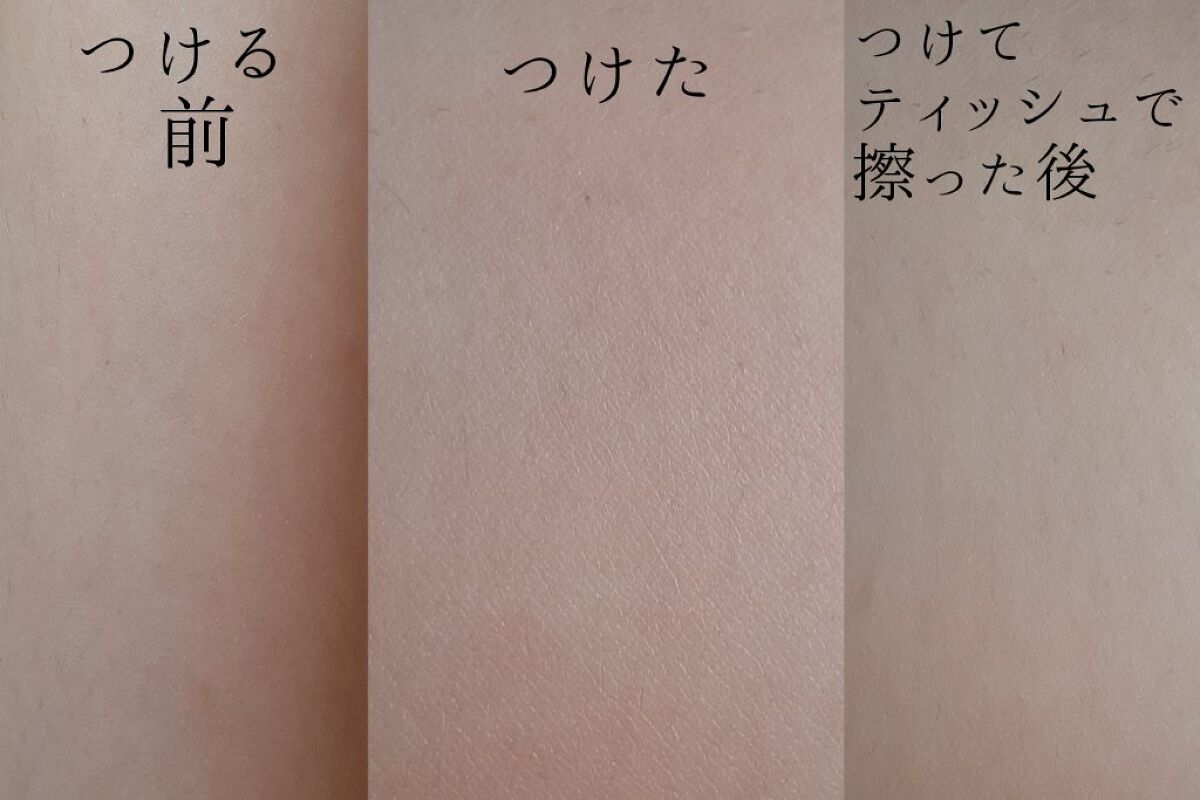 つける
前
つけた
つけて
ティッシュで
擦った後